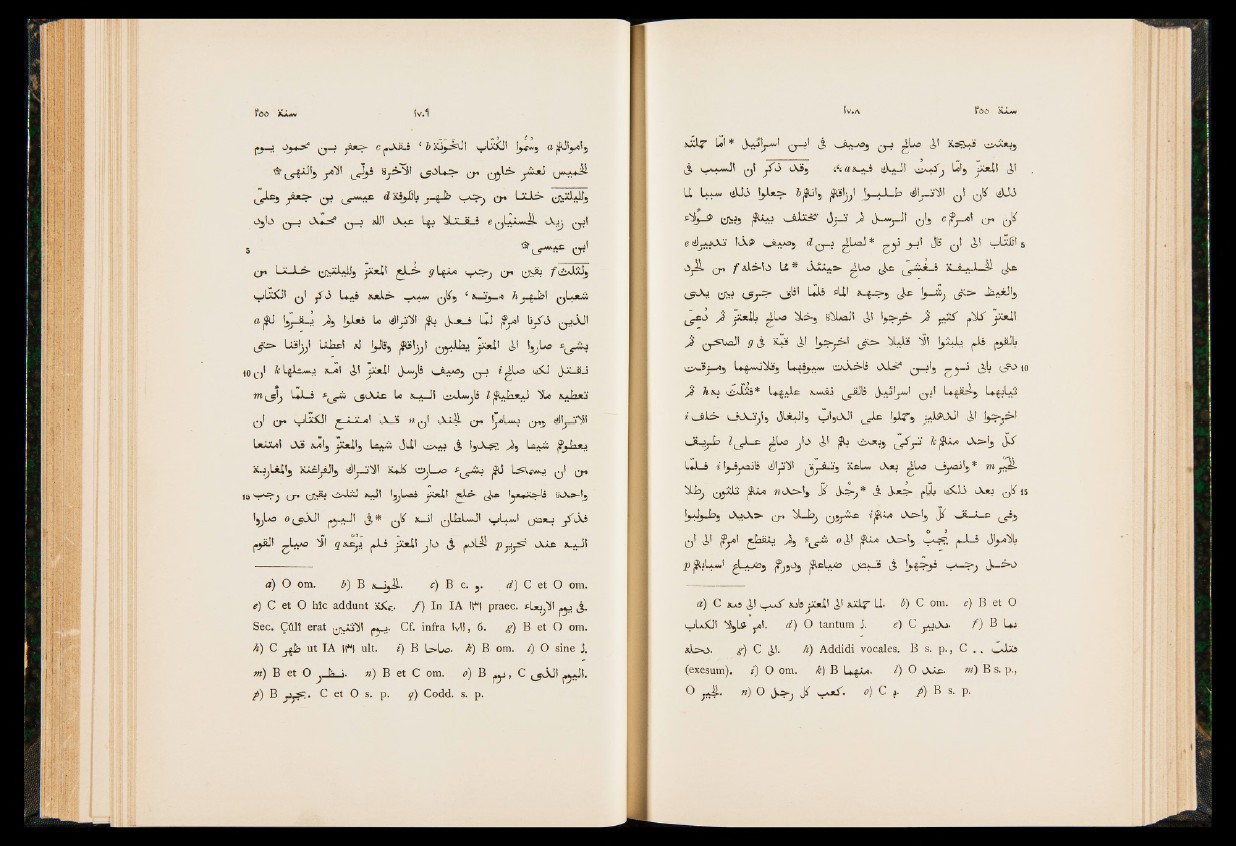 ١٧٠٨ سنة ٢٥٥
وبعثت قبيحة الى صالح بن وصيف فى ابن اسرائيل * امّا حملته
الى المعتزّ وامّا ركبتُ اليك فيه a ۞ وقد ذكر ان السبب فى
ذلك كان ان الاتراك طلبوا ارزاقهم b وانهم جعلوا ذلك سببا لما
كان من امرهم c وان الرسل لم تزل تختلف بينهم وبين هؤلاء
5 الكتّاب الى ان قال ابو نوح * لصالح بن d وصيف هذا تدبيرك e
على الخليفة فغشى على صالح حينئذ * ممّا داخله f من الحرد
والغيظ حتى رشّوا على وجهه الماء فلمّا افاق جرى بين يدى
المعتزّ كلام كثير ثم خرجوا الى الصلاة وخلا صالح بالمعتزّ ثم دُعى
بالقوم فلم يلبثوا الّا قليلا حتى اخرجوا الى قبّة فى g الصحن ثم
10 دعى بابى نوح وابن مخلد فاخذت سيوفهما وقلانسهما ومزّقت
ثيابهما ولحقهما ابن اسرائيل فالقى نفسه عليهما * فثُلّث به h ثم
اخرجوا الى الدهليز وحملوا على الدوابّ والبغال وارتدف خلف i
كلّ واحد منهم k تركىّ وبعث بهم الى دار صالح على l طريق
الحير m * وانصرف صالح بعد ساعة وتفرّق الاتراك فانصرفوا i فلمّا
15 كان بعد ذلك بايّام جُعل فى * رجْل كلّ واحد n منهم ثلثون رطلا
وفى عنق كلّ واحد منهم i عشرون رطلا من حديد وطولبوا
بالاموال فلم يُجبْ واحد منهم الى o شىء ولم ينقطع امرهم الى ان
دخل رجب فوجّهوا فى قبض ضياعهم ودورهم وضياع اسبابهم p
a) C لما حملته الى المعتز فاذا كبت الى فيه. b) C om. c) B et O
امر هاولا الكتاب. d) O tantum ل. e) C بتدبير. f) B لما
دخله. g) C الى. h) Addidi vocales. B s. p., C . . فتلت
(exesum). i) O om. k) B منهما. l) O عند. m) B s. p.,
O الجير. n) O كعب كل رجل. o) C فى. p) B s. p.
١٧٠٩ سنة ٢٥٥
واموالهم a وسُمّوا الكتّاب الخَوَنة b ، فقدم c جعفر بن محمود يوم
الخميس لعشر خلون من جمادى الآخرة فولّى الامر والنهى ۞
ولليلتين خلتا من رجب ظهر بالكوفة d عيسى بن جعفر وعلىّ
ابن زيد الحسنيّان e فقتلا بها عبد الله بن محمّد بن داود
5 ابن عيسى ۞
ولثلث f بقين من رجب منها g خُلع المعتزّ ولليلتين خلتا من
شعبان اظهر h موته ، وكان سبب خلعه فيما ذكر ان الكتّاب
الذين ذكرنا امرهم لمّا فعل بهم الاتراك ما فعلوا ولم يُقرّوا لهم a
بشىء صاروا الى المعتزّ يطلبون ارزاقهم وقالوا له اعطنا ارزاقنا حتى
10 نقتل لك صالح i بن وصيف فارسل المعتزّ الى امّه يسئلها k ان
تعطيه مالا ليعطيهم l فارسلت اليه ما عندى شىء فلمّا رأى m
الاتراك ومن بسامرّا من الجند ان n قد امتنع الكتّاب من ان
يعطوهم شيئا ولم يجدوا فى بيت المال شيئا والمعتزّ وامّه قد امتنعا
من ان يسمحا لهم بشىء صارت كلمة الاتراك والفراغنة والمغاربة
15 واحدة فاجتمعوا على خلع المعتزّ فصاروا اليه لثلث بقين من رجب
فذكر بعض اسباب السلطان انه كان * فى اليوم الذى o صاروا
اليه عند نحرير p الخادم فى دار المعتزّ فلم يَرُعْه q الّا صياح القوم
a) O om. b) B الخونه. c) B c. و. d) C et O om.
e) C et O hîc addunt بمكة. f) In IA ١٣٢ praec. فى يوم الاربعاء.
Sec. Çûlî erat يوم الاثنين. Cf. infra ١٧١١, 6. g) B et O om.
h) C ظهر ut IA ١٣٢ ult. i) B صاحبا. k) B om. l) O sine ل.
m) B et O نظر. n) B et C om. o) B يوم, C اليوم الذى.
p) B بجرير. C et O s. p. q) Codd. s. p.